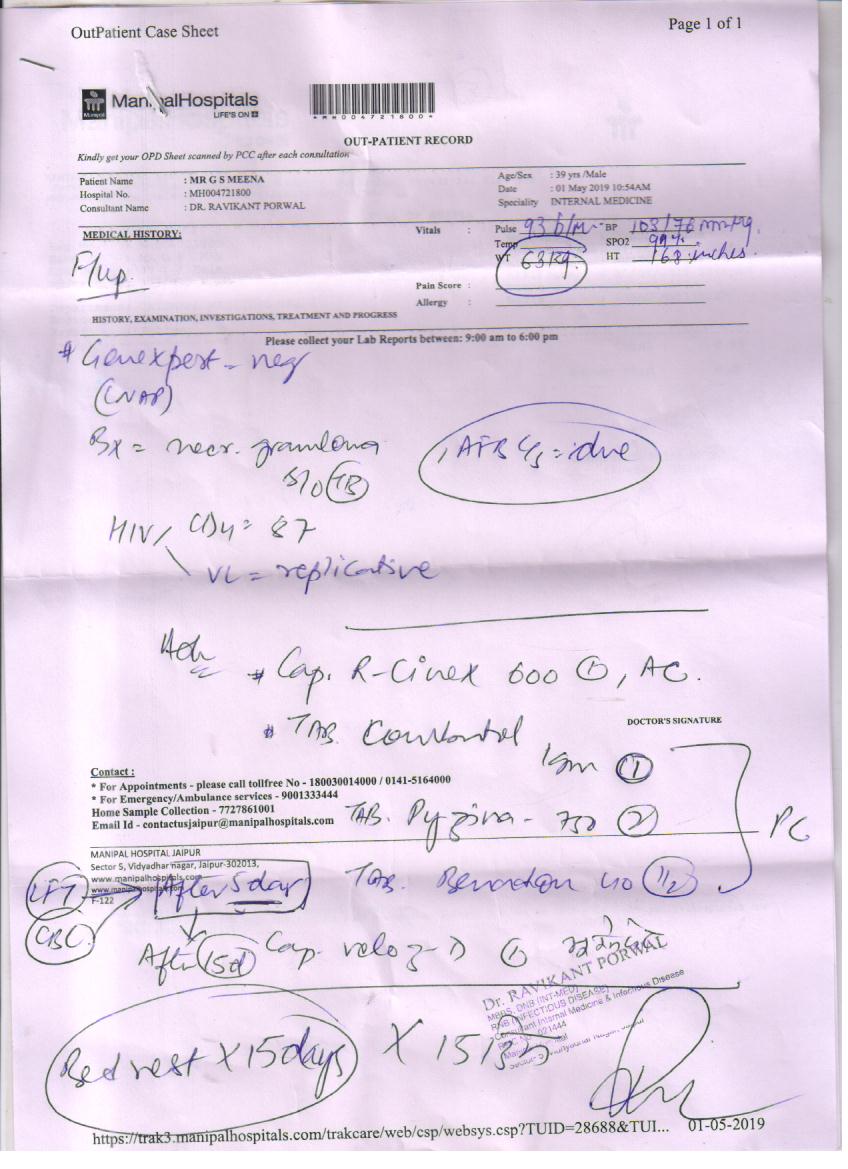 OutPatient Case Sheet
Page 1 of 1
ManipalHospitals
LIFE'S ON
*MH004721800*
OUT-PATIENT RECORD
Kindly get your OPD Sheet scanned by PCC after each consultation
Patient Name : MR G S MEENA
Age/Sex : 39 yrs /Male
Hospital No. : MH004721800
Date : 01 May 2019 10:54AM
Consultant Name : DR. RAVIKANT PORWAL
Speciality INTERNAL MEDICINE
MEDICAL HISTORY:
Vitals : Pulse 93 b/m BP 103/76 mmHg.
Temp SPO2 99%.
WT 63kg. HT 168 inches.
F/up.
Pain Score :
Allergy :
HISTORY, EXAMINATION, INVESTIGATIONS, TREATMENT AND PROGRESS
Please collect your Lab Reports between: 9:00 am to 6:00 pm
# Genexpert - neg
Bx = necr. granuloma
AFB C/S = due
S/O TB
HIV CD4 = 87
VL = replicative
Adv
# Cap. R-Cinex 600 1, AC.
# TAB. Combutol
DOCTOR'S SIGNATURE
1gm 1
Contact :
* For Appointments - please call tollfree No - 180030014000 / 0141-5164000
* For Emergency/Ambulance services - 9001333444
Home Sample Collection - 7727861001
Email Id - contactusjaipur@manipalhospitals.com
TAB. Pyzina - 750 2
PC
MANIPAL HOSPITAL JAIPUR
Sector 5, Vidyadhar nagar, Jaipur-302013,
www.manipalhospitals.com
www.manipalhospitals.com
F-122
LFT
CBC
After 5 day
TAB. Benadon 40 1/2
After 15d
Cap. Veloz-D 1
Dr. RAVIKANT PORWAL
MBBS, DNB (INT-MED)
FNB (INFECTIOUS DISEASE)
Consultant Internal Medicine & Infectious Disease
021444
Bed rest X 15 days
X 15
https://trak3.manipalhospitals.com/trakcare/web/csp/websys.csp?TUID=28688&TUI...
01-05-2019